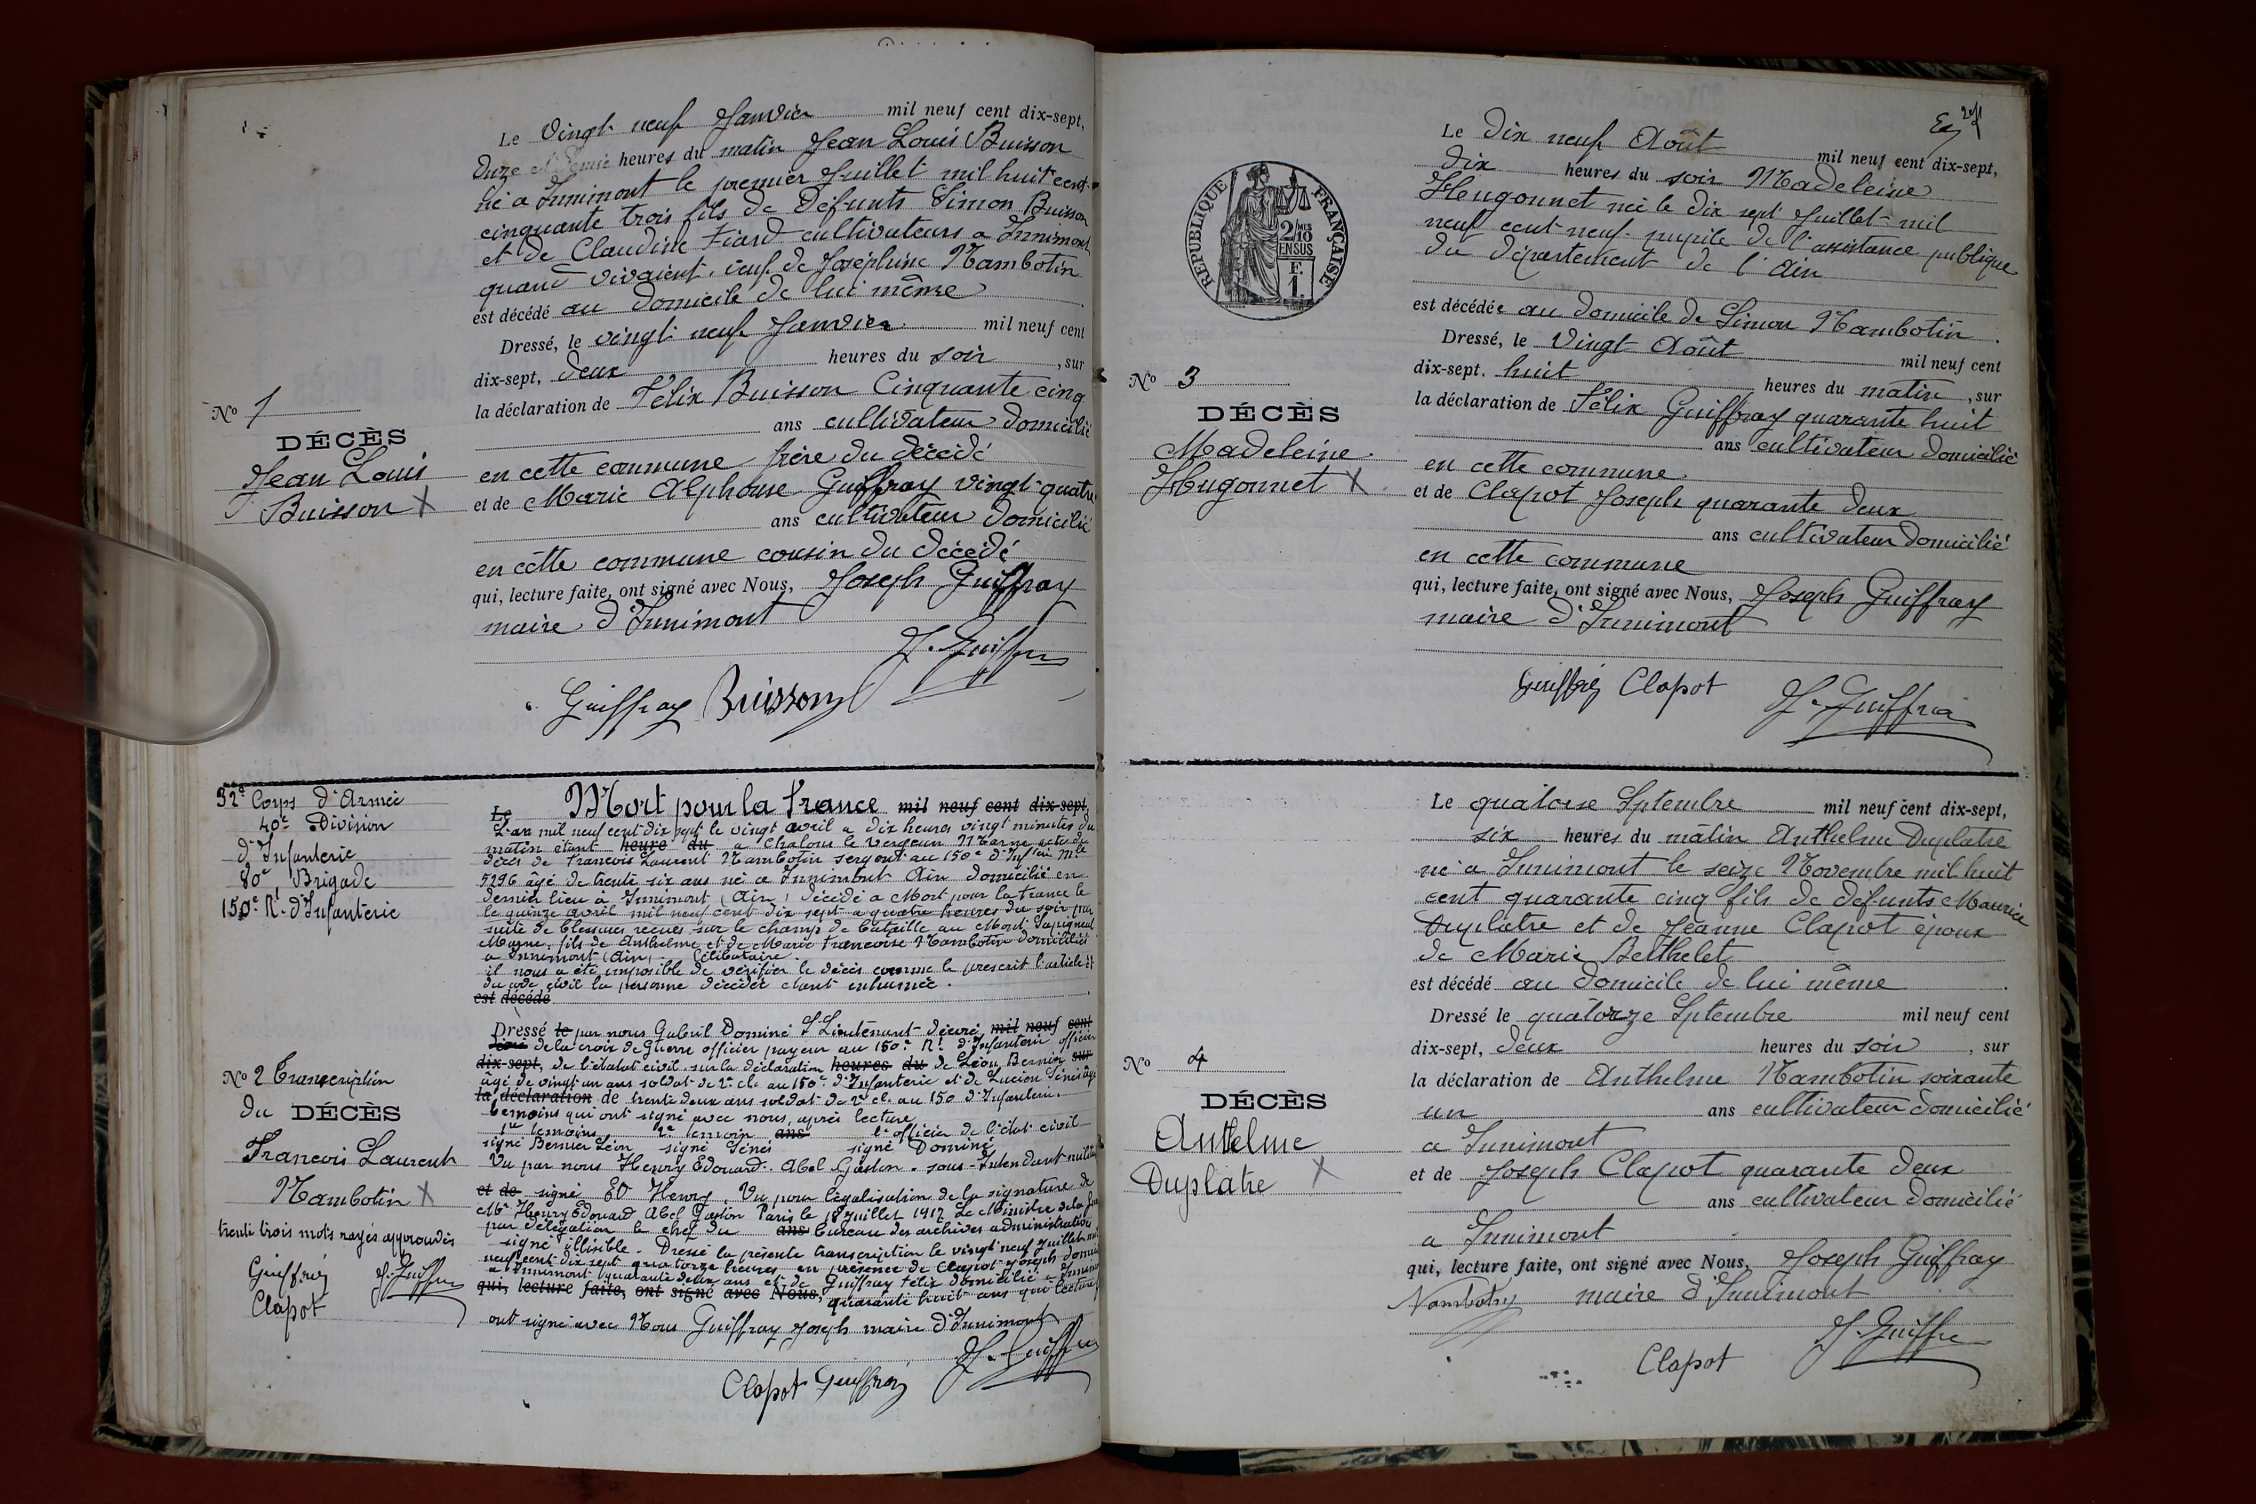 Le Vingt neuf Janvier mil neuf cent dix-sept,
Onze et demie heures du matin Jean Louis Buisson
né a Innimont le premier Juillet mil huit cent
cinquante trois fils de défunts Simon Buisson
et de Claudine Fiard cultivateurs a Innimont
quand vivaient, veuf de Joséphine Nambotin
est décédé au domicile de lui même
Dressé, le vingt neuf Janvier mil neuf cent
dix-sept, deux heures du soir, sur
la déclaration de Félix Buisson Cinquante cinq
ans cultivateur domicilié
en cette commune frère du décédé
et de Marie Alphonse Guiffray vingt-quatre
ans cultivateur domicilié
en cette commune cousin du décédé
qui, lecture faite, ont signé avec Nous, Joseph Guiffray
maire d'Innimont
J. Guiffray
Guiffray Buisson
No 1
DÉCÈS
Jean Louis
Buisson X
32e Corps d'Armée
40e Division
d'Infanterie
80e Brigade
150e Rt d'Infanterie
Le Mort pour la France mil neuf cent dix-sept,
L'an mil neuf cent dix sept le vingt avril a dix heures vingt minutes du
matin étant heure du a Chalons le Vergeur Marne acte de
décès de Francois Laurent Nambotin sergent au 150e d'Inf.ie Mle
5296 âgé de trente six ans né a Innimont Ain domicilié en
dernier lieu à Innimont (Ain) décédé a Mort pour la France le
le quinze avril mil neuf cent dix sept a quatre heures du soir par
suite de blessures recues sur le champ de bataille au Mont Sapigneul
Marne, fils de Anthelme et de Marie Francoise Nambotin domiciliés
a Innimont (Ain) Célibataire.
il nous a été imposible de vérifier le décès comme le prescrit l'article 77
du code civil la personne décédée étant inhumée.
est décédé
Dressé le par nous Gabriel Dominé S. Lieutenant décoré mil neuf cent
de la croix de Guerre officier payeur au 150e Rt d'Infanterie officier
dix-sept, de l'état civil sur la déclaration heures du de Léon Bernier sur
âgé de vingt un ans soldat de 2e cl. au 150e d'Infanterie et de Lucien Sénés âgé
la déclaration de trente deux ans soldat de 2e cl. au 150 d'Infanterie.
témoins qui ont signé avec nous, après lecture
1er témoins 2e témoin ans l'officier de l'état civil
signé Bernier Léon signé Sénés signé Dominé
Vu par nous Henry Edouard Abel Gaston sous-Intendant militaire
et de signé ED Henry. Vu pour légalisation de la signature de
Mr Henry Edouard Abel Gaston Paris le 18 Juillet 1917 Le Ministre de la
par délégation le chef du ans bureau des archives administratives
signé illisible. Dressé la présente transcription le vingt neuf Juillet mil
neuf cent dix sept quatorze heures en présence de Clapot Joseph
a Innimont quarante deux ans et de Guiffray Félix domicilié a
qui, lecture faite, ont signé avec Nous, quarante huit ans qui lecture
ont signé avec Nous Guiffray Joseph maire d'Innimont
J. Guiffray
Clapot Guiffray
No 2 Transcription
du DÉCÈS
Francois Laurent
Nambotin X
trente trois mots rayés approuvés
Guiffray J. Guiffray
Clapot
RÉPUBLIQUE FRANÇAISE
2/10 MES
EN SUS
F.
1.
Le dix neuf Août mil neuf cent dix-sept,
dix heures du soir Madeleine
Hugonnet née le dix sept Juillet mil
neuf cent neuf pupile de l'assistance publique
du département de l'Ain
est décédée au domicile de Simon Nambotin.
Dressé, le Vingt Août mil neuf cent
dix-sept. huit heures du matin, sur
la déclaration de Félix Guiffray quarante huit
ans cultivateur domicilié
en cette commune.
et de Clapot Joseph quarante deux
ans cultivateur domicilié
en cette commune
qui, lecture faite, ont signé avec Nous, Joseph Guiffray
maire d'Innimont
Guiffray Clapot J. Guiffray
No 3
DÉCÈS
Madeleine
Hugonnet X
Le quatorze Septembre mil neuf cent dix-sept,
six heures du matin Anthelme Duplatre
né a Innimont le seize Novembre mil huit
cent quarante cinq fils de défunts Maurice
Duplatre et de Jeanne Clapot époux
de Marie Bethelet
est décédé au domicile de lui même.
Dressé le quatorze Septembre mil neuf cent
dix-sept, deux heures du soir, sur
la déclaration de Anthelme Nambotin soixante
un ans cultivateur domicilié
a Innimont
et de Joseph Clapot quarante deux
ans cultivateur domicilié
a Innimont
qui, lecture faite, ont signé avec Nous, Joseph Guiffray
Nambotin maire d'Innimont
J. Guiffray
Clapot
No 4
DÉCÈS
Anthelme
Duplatre X